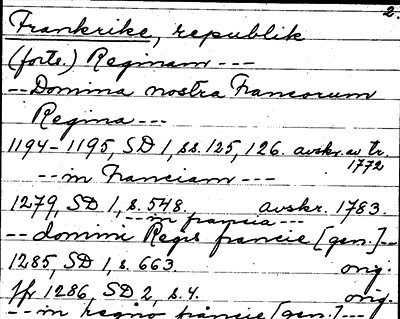 2.
Frankrike, republik
(forte) Reginam ---
-- Domina nostra Francorum
Regina ---
1194-1195, SD 1, ss. 125, 126. avskr. av tr.
1772
-- in Franciam ---
1279, SD 1, s. 548. avskr. 1783.
-- in francia ---
-- domini Regis francie [gen.] --
1285, SD 1, s. 663. orig.
1286, SD 2, s. 4. orig.
-- in regno francie [gen.] ---